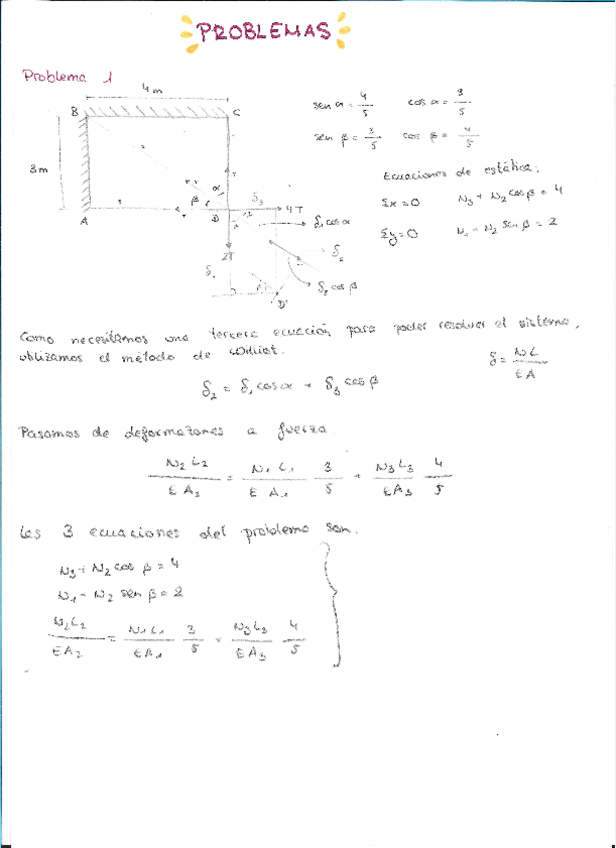 PROBLEMAS
Problema 1
4m
B
C
3m
A
D
α
β
δ₃
4T
δ₁cosα
δ₂
δ₃ cos β
2T
δ₁
D'
sen α = 4/5 cos α = 3/5
sen β = 3/5 cos β = 4/5
Ecuaciones de estática:
Σx=0 N₃ + N₂ cosβ = 4
Σy=0 N₁ + N₂ sen β = 2
Como necesitamos una tercera ecuación para poder resolver el sistema,
utilizamos el método de Williot.
δ = NL / EA
δ₂ = δ₁ cosα + δ₃ cosβ
Pasamos de deformaciones a fuerza.
N₂ L₂ / E A₂ = N₁ L₁ / E A₁ 3/5 + N₃ L₃ / E A₃ 4/5
Las 3 ecuaciones del problema son.
N₃ + N₂ cos β = 4
N₁ + N₂ sen β = 2
N₂L₂ / EA₂ = N₁ L₁ / EA₁ 3/5 + N₃L₃ / EA₃ 4/5